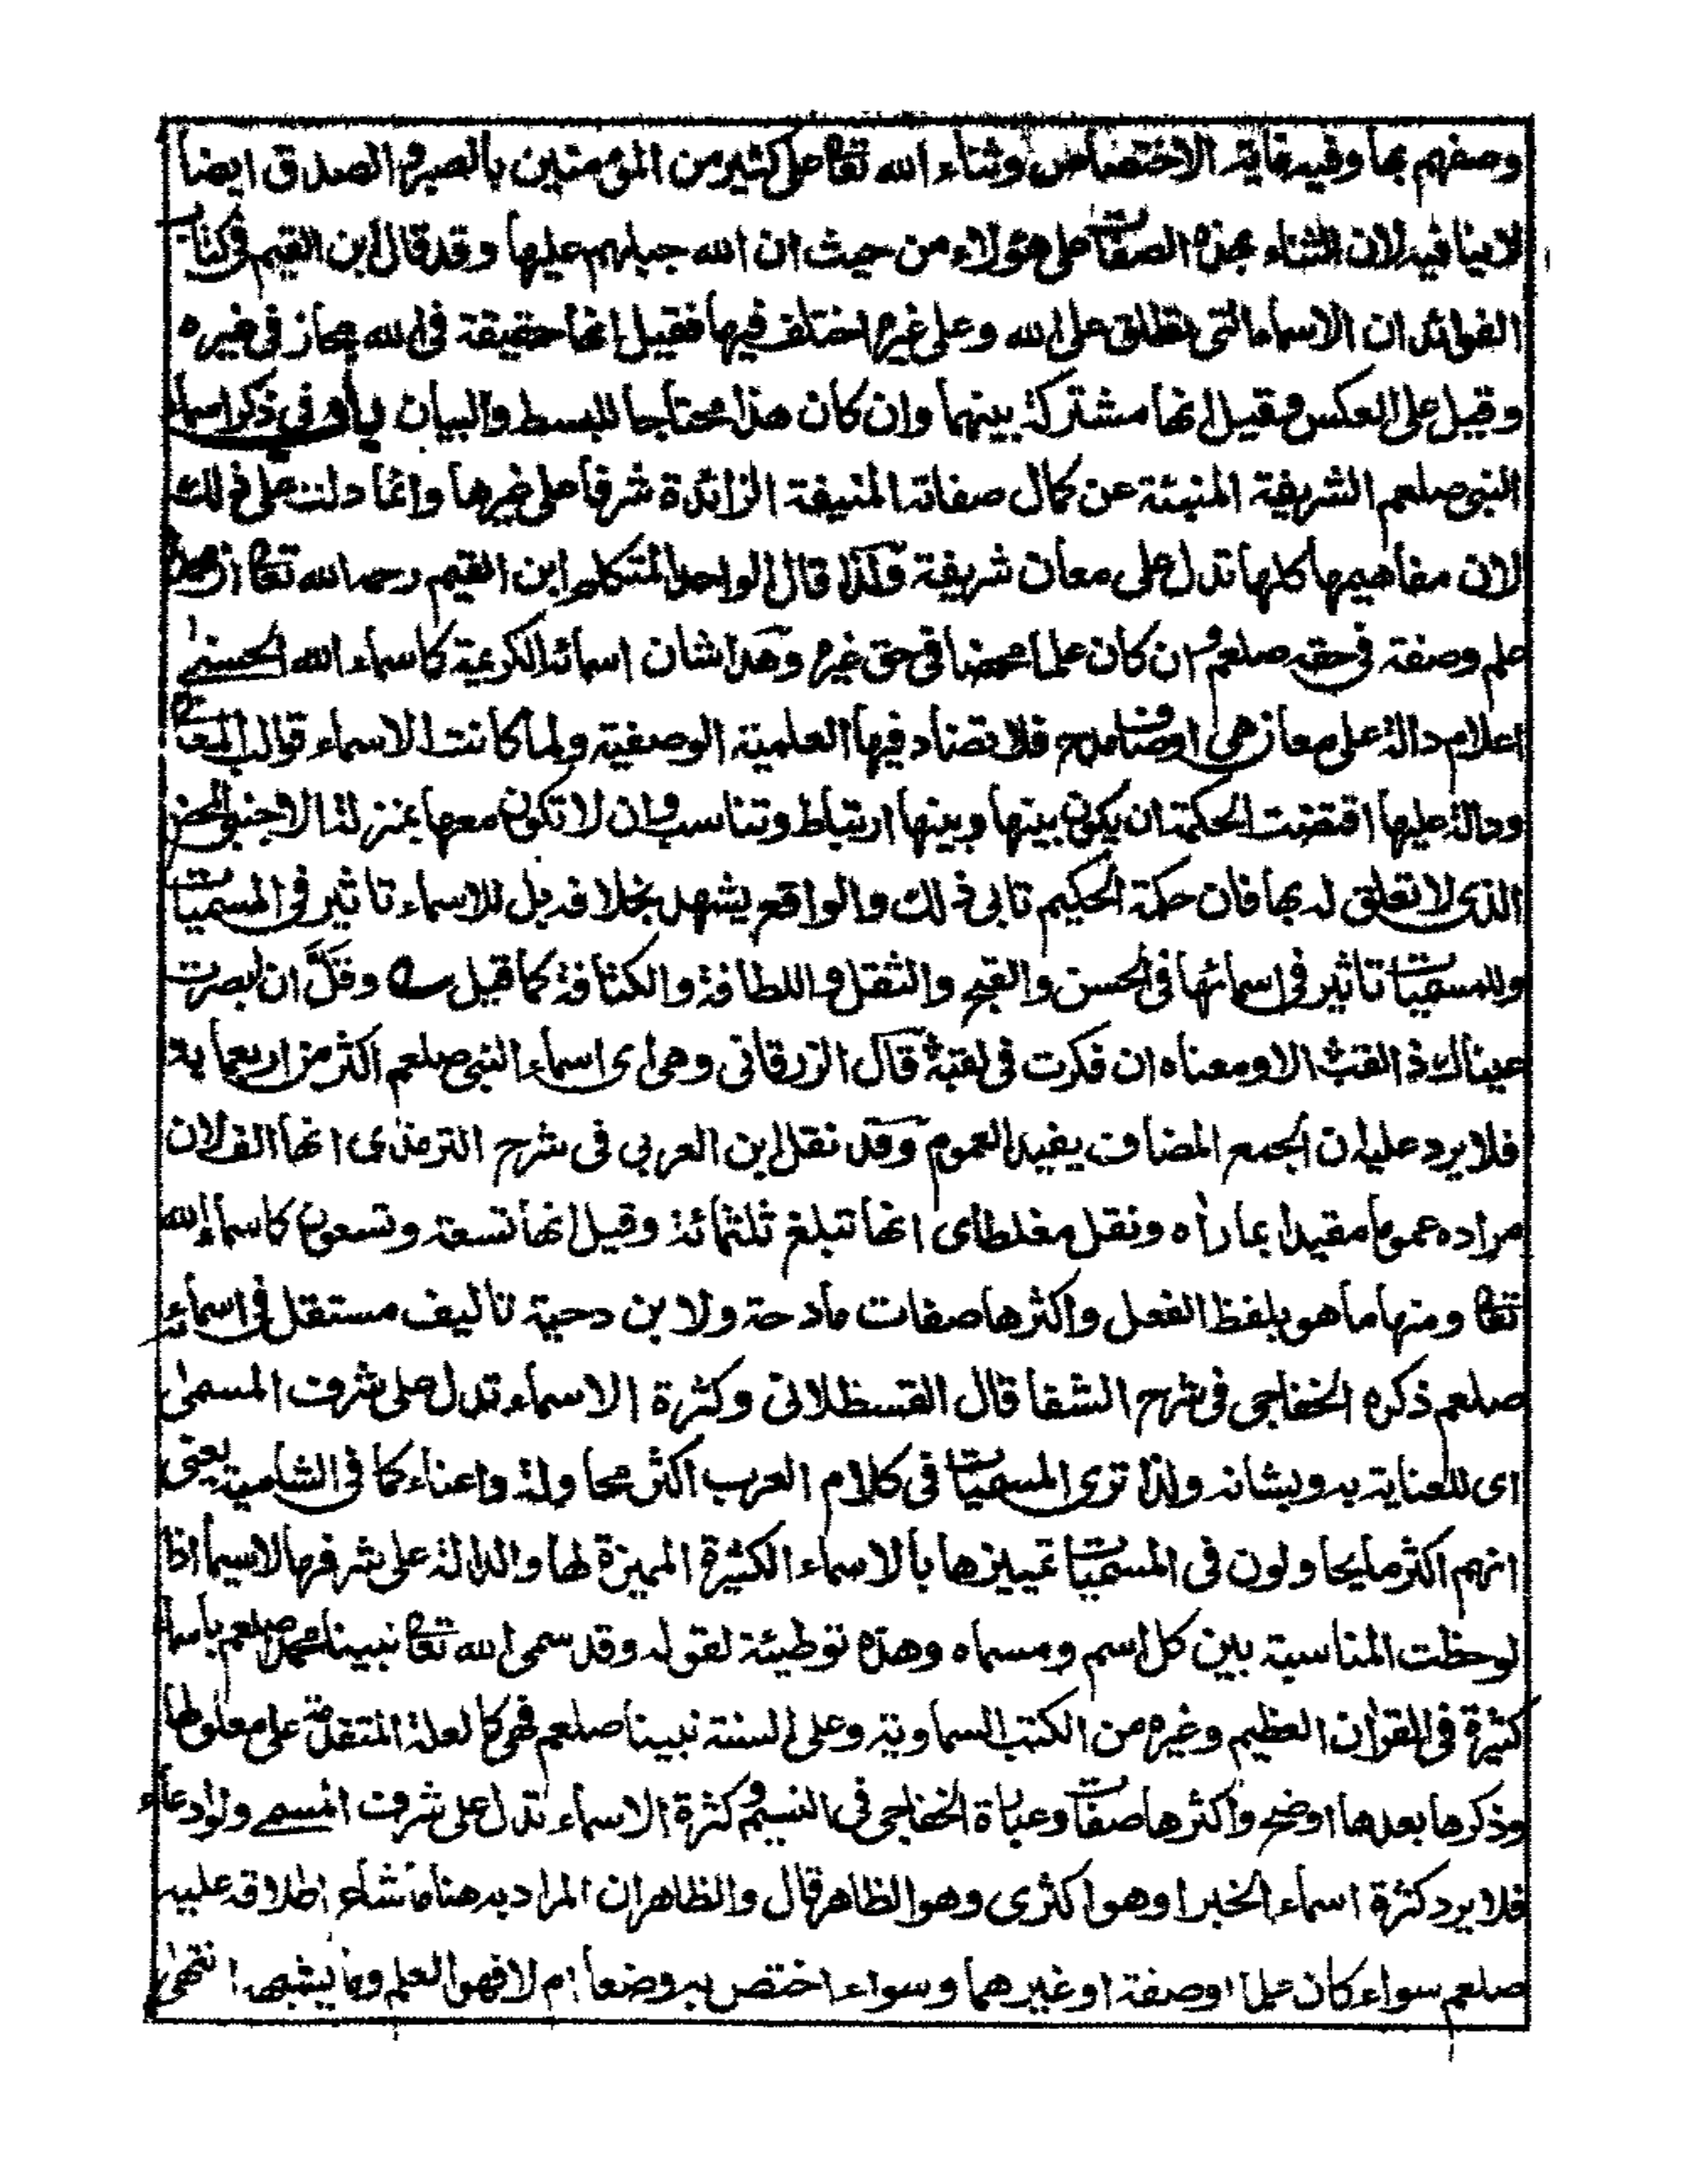 وصفهم بها وفيه غاية الاختصاص وثناء الله تعا على كثير من المؤمنين بالصبر والصدق ايضا
لاينافيه لان الثناء بهذه الصفات على هؤلاء من حيث ان الله جبلهم عليها وقد قال ابن القيم في كتاب
الفوائد ان الاسماء التى تطلق على الله وعلى غيره اختلف فيها فقيل انها حقيقة فى الله مجاز فى غيره
وقيل على العكس وقيل انها مشتركة بينهما وان كان هذا محتاجا للبسط والبيان في ذكر اسماء
النبى صلعم الشريفة المنبئة عن كمال صفاته المنيفة الزائدة شرفا على غيرها وانما دلت على ذلك
لان مفاهيمها كلها تدل على معان شريفة ولذا قال الواحد المتكلم ابن القيم رحمه الله تعا ان محمدا
علم وصفة فى حقه صلعم وان كان علما محضا فى حق غيره وهذا شان اسمائه الكريمة كاسماء الله الحسنى
اعلام دالة على معان هى اوصاف مدح فلا تضاد فيها العلمية الوصفية ولما كانت الاسماء قوالب المعانى
ودالة عليها اقتضت الحكمة ان يكون بينها وبينها ارتباط وتناسب وان لا تكون معها بمنزلة الاجنبى المحض
الذى لا تعلق له بها فان حكمة الحكيم تابى ذلك والواقع يشهد بخلافه بل للاسماء تاثير فى المسميات
وللمسميات تاثير فى اسمائها فى الحسن والقبح والثقل واللطافة والكثافة كما قيل وقَلَّ ان ابصرت
عيناك ذا لقب الا ومعناه ان فكرت فى لقبه قال الزرقانى وهى اى اسماء النبى صلعم اكثر من اربعماية
فلا يرد عليه ان الجمع المضاف يفيد العموم وقد نقل ابن العربي فى شرح الترمذى انها الف لان
مراده عموما مقيدا بما رأه ونقل مغلطاى انها تبلغ ثلثمائة وقيل انها تسعة وتسعون كاسماء الله
تعا ومنها ما هو بلفظ الفعل واكثرها صفات مادحة ولابن دحية تاليف مستقل فى اسمائه
صلعم ذكره الخفاجى فى شرح الشفا قال القسطلانى وكثرة الاسماء تدل على شرف المسمى
اى للعناية به وبشانه ولذا ترى المسميات فى كلام العرب اكثر محاولة واعتناء كما فى الشامية يعنى
انهم اكثر ما يحاولون فى المسميات تمييزها بالاسماء الكثيرة المميزة لها والدالة على شرفها لاسيما اذا
لوحظت المناسبة بين كل اسم ومسماه وهذه توطيئة لقوله وقد سمى الله تعا نبينا محمدا صلعم باسماء
كثيرة فى القران العظيم وغيره من الكتب السماوية وعلى السنة نبينا صلعم فهى كالعلة المتقدمة على معلولها
وذكرها بعدها اوضح واكثرها صفات وعبارة الخفاجى فى النسيم وكثرة الاسماء تدل على شرف المسمى ولو ادعاء
فلا يرد كثرة اسماء الخبر او هو اكثرى وهو الظاهر قال والظاهر ان المراد به هنا ما شاء اطلاقه عليه
صلعم سواء كان علما او صفة او غيرهما وسواء اختص به وضعا ام لا فهو العلم وما يشبهه انتهى